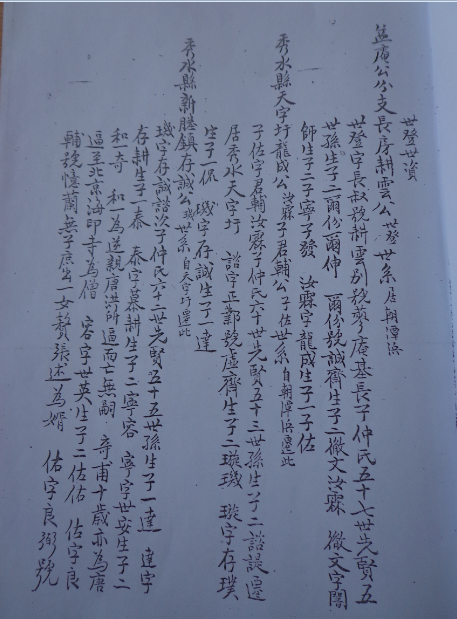 世登世資
益庵公分支長房耕雲公世登世系居朝潭浜
世登字長叔號耕雲別號蓼庵基長子仲氏五十七世先賢五
世孫生子二爾份爾伸 爾份號誠齊生子二徵文汝霖 徵文字闇
師生子二子寧子發 汝霖字龍成生子一子佐
秀水縣天字圩龍成公汝霖子君輔公子佐世系自朝潭浜遷此
子佐字君輔汝霖子仲氏六十世先賢五十三世孫生子二諮諟遷
居秀水天字圩 諮字正鄰號虛齊生子二璇璣 璇字存璞
生子一侃 璣字存誠生子一達
秀水縣新塍鎮存誠公璣世系自天字圩遷此
璣字存誠諮次子仲氏六十二世先賢五十五世孫生子一達 達字
存耕生子一泰 泰字慕耕生子二寧容 寧字世安生子二
和一奇 和為逆親唐洪所逼而亡無嗣 奇甫十歲亦為唐
逼至北京海印寺為僧 容字世英生子二佐佑 佐字良
輔號憶蘭無子庶出一女贅張述為婿 佑字良弼號